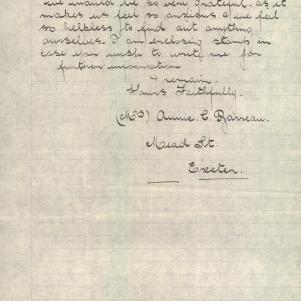 we would be so very grateful. as it
makes us feel so anxious & we feel
so helpless to find out anything
ourselves. I am enclosing stamp in
case you wish to write me for
further information
I remain.
Yours Faithfully.
(Mrs) Annie. C.
Mead St.
Exeter.